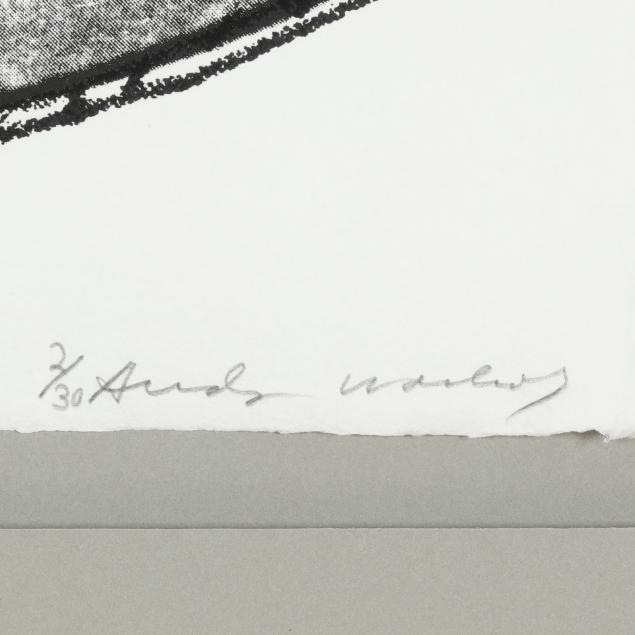 2/30 Andy Warhol